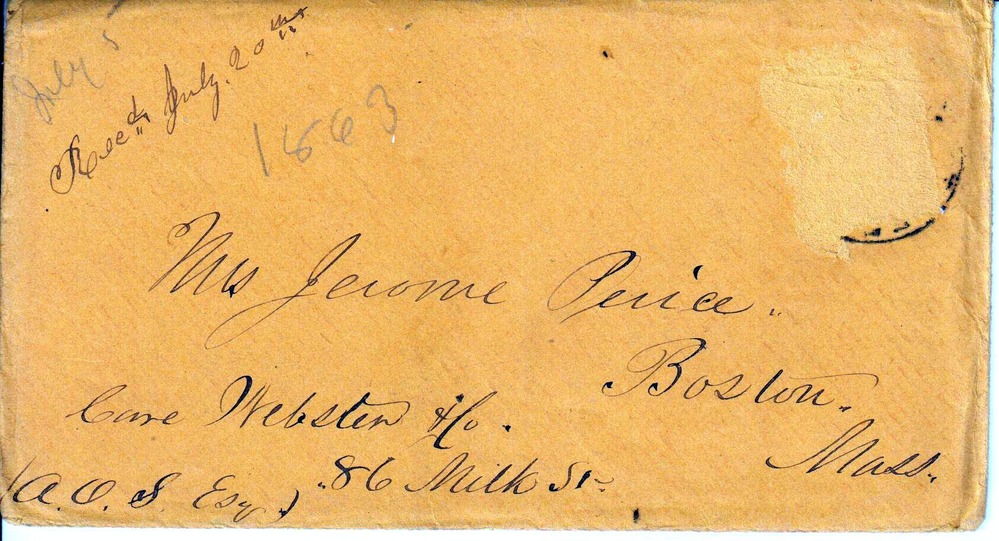 July 5
Recd July. 20th
1863
Mrs Jerome Perice.
Boston.
Mass.
Care Webster & Co.
86 Milk St.
(A. O. S. Esq)